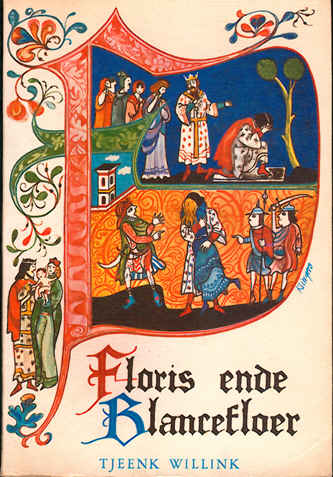 Floris ende
Blancefloer
TJEENK WILLINK